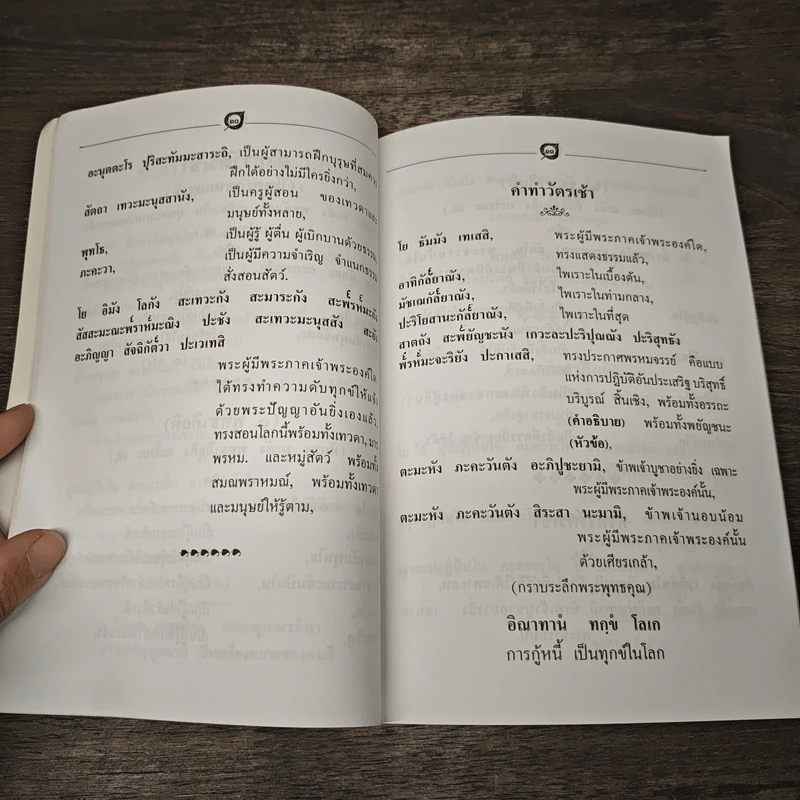 ๑๐
อะนุตตะโร ปุริสะทัมมะสาระถิ, เป็นผู้สามารถฝึกบุรุษที่สมควร
ฝึกได้อย่างไม่มีใครยิ่งกว่า,
สัตถา เทวะมะนุสสานัง, เป็นครูผู้สอน ของเทวดาและ
มนุษย์ทั้งหลาย,
พุทโธ, เป็นผู้รู้ ผู้ตื่น ผู้เบิกบานด้วยธรรม,
ภะคะวา, เป็นผู้มีความจำเริญ จำแนกธรรม
สั่งสอนสัตว์.
โย อิมัง โลกัง สะเทวะกัง สะมาระกัง สะพ๎รห๎มะกัง
สัสสะมะณะพ๎ราห๎มะณิง ปะชัง สะเทวะมะนุสสัง สะยัง
อะภิญญา สัจฉิกัต๎วา ปะเวเทสิ
พระผู้มีพระภาคเจ้าพระองค์ใด
ได้ทรงทำความดับทุกข์ให้แจ้ง
ด้วยพระปัญญาอันยิ่งเองแล้ว,
ทรงสอนโลกนี้พร้อมทั้งเทวดา, มาร
พรหม. และหมู่สัตว์ พร้อมทั้ง
สมณพราหมณ์, พร้อมทั้งเทวดา
และมนุษย์ให้รู้ตาม,
๑๑
คำทำวัตรเช้า
โย ธัมมัง เทเสสิ, พระผู้มีพระภาคเจ้าพระองค์ใด,
ทรงแสดงธรรมแล้ว,
อาทิกัล๎ยาณัง, ไพเราะในเบื้องต้น,
มัชเฌกัล๎ยาณัง, ไพเราะในท่ามกลาง,
ปะริโยสานะกัล๎ยาณัง, ไพเราะในที่สุด
สาตถัง สะพ๎ยัญชะนัง เกวะละปะริปุณณัง ปะริสุทธัง
พ๎รห๎มะจะริยัง ปะกาเสสิ, ทรงประกาศพรหมจรรย์ คือแบบ
แห่งการปฏิบัติอันประเสริฐ บริสุทธิ์
บริบูรณ์ สิ้นเชิง, พร้อมทั้งอรรถะ
(คำอธิบาย) พร้อมทั้งพยัญชนะ
(หัวข้อ),
ตะมะหัง ภะคะวันตัง อะภิปูชะยามิ, ข้าพเจ้าบูชาอย่างยิ่ง เฉพาะ
พระผู้มีพระภาคเจ้าพระองค์นั้น,
ตะมะหัง ภะคะวันตัง สิระสา นะมามิ, ข้าพเจ้านอบน้อม
พระผู้มีพระภาคเจ้าพระองค์นั้น
ด้วยเศียรเกล้า,
(กราบระลึกพระพุทธคุณ)
อิณาทานํ ทุกฺขํ โลเก
การกู้หนี้ เป็นทุกข์ในโลก